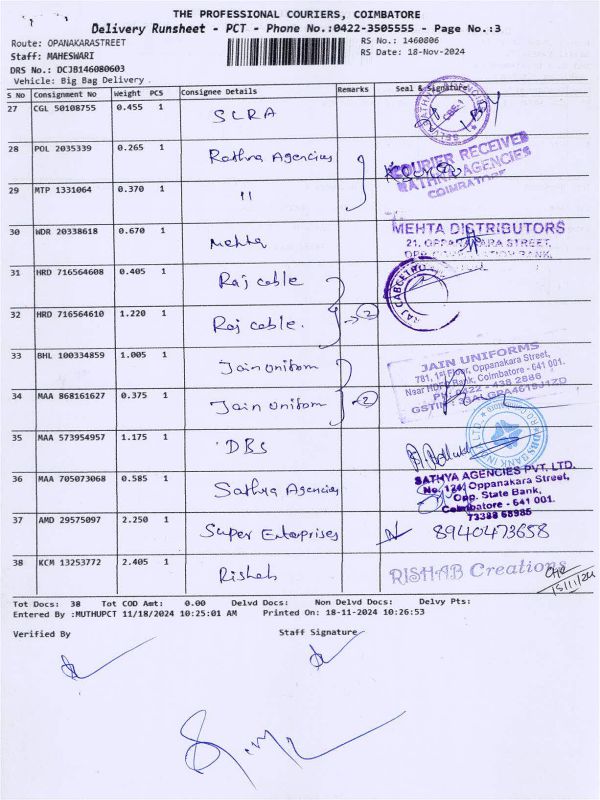 THE PROFESSIONAL COURIERS, COIMBATORE
Delivery Runsheet - PCT - Phone No.:0422-3505555 - Page No.:3
Route: OPANAKARASTREET
RS No.: 1460806
Staff: MAHESWARI
RS Date: 18-Nov-2024
DRS No.: DCJB146080603
Vehicle: Big Bag Delivery
S No Consignment No Weight PCS Consignee Details Remarks Seal & Signature
27 CGL 50108755 0.455 1 SLRA
28 POL 2035339 0.265 1 Rathna Agencies
COURIER RECEIVED
RATHNA AGENCIES
COIMBATORE
29 MTP 1331064 0.370 1 "
30 WDR 20338618 0.670 1 Mehta
MEHTA DISTRIBUTORS
21, OPPANAKARA STREET,
31 HRD 716564608 0.405 1 Raj cable
32 HRD 716564610 1.220 1 Raj cable. 2
33 BHL 100334859 1.005 1 Jain Uniform
JAIN UNIFORMS
781, 1st Floor, Oppanakara Street,
Near HDFC Bank, Coimbatore - 641 001.
PH: 0422 - 438 2886
34 MAA 868161627 0.375 1 Jain Uniform 2
35 MAA 573954957 1.175 1 DBS
DBS BANK INDIA LTD.
36 MAA 705073068 0.585 1 Sathya Agencies
SATHYA AGENCIES PVT, LTD.
No. 124, Oppanakara Street,
Opp. State Bank,
Coimbatore - 641 001.
73388 58985
37 AMD 29575097 2.250 1 Super Enterprises 8940473658
38 KCM 13253772 2.405 1 Rishab
RISHAB Creations
Tot Docs: 38 Tot COD Amt: 0.00 Delvd Docs: Non Delvd Docs: Delvy Pts:
Entered By :MUTHUPCT 11/18/2024 10:25:01 AM Printed On: 18-11-2024 10:26:53
Verified By Staff Signature